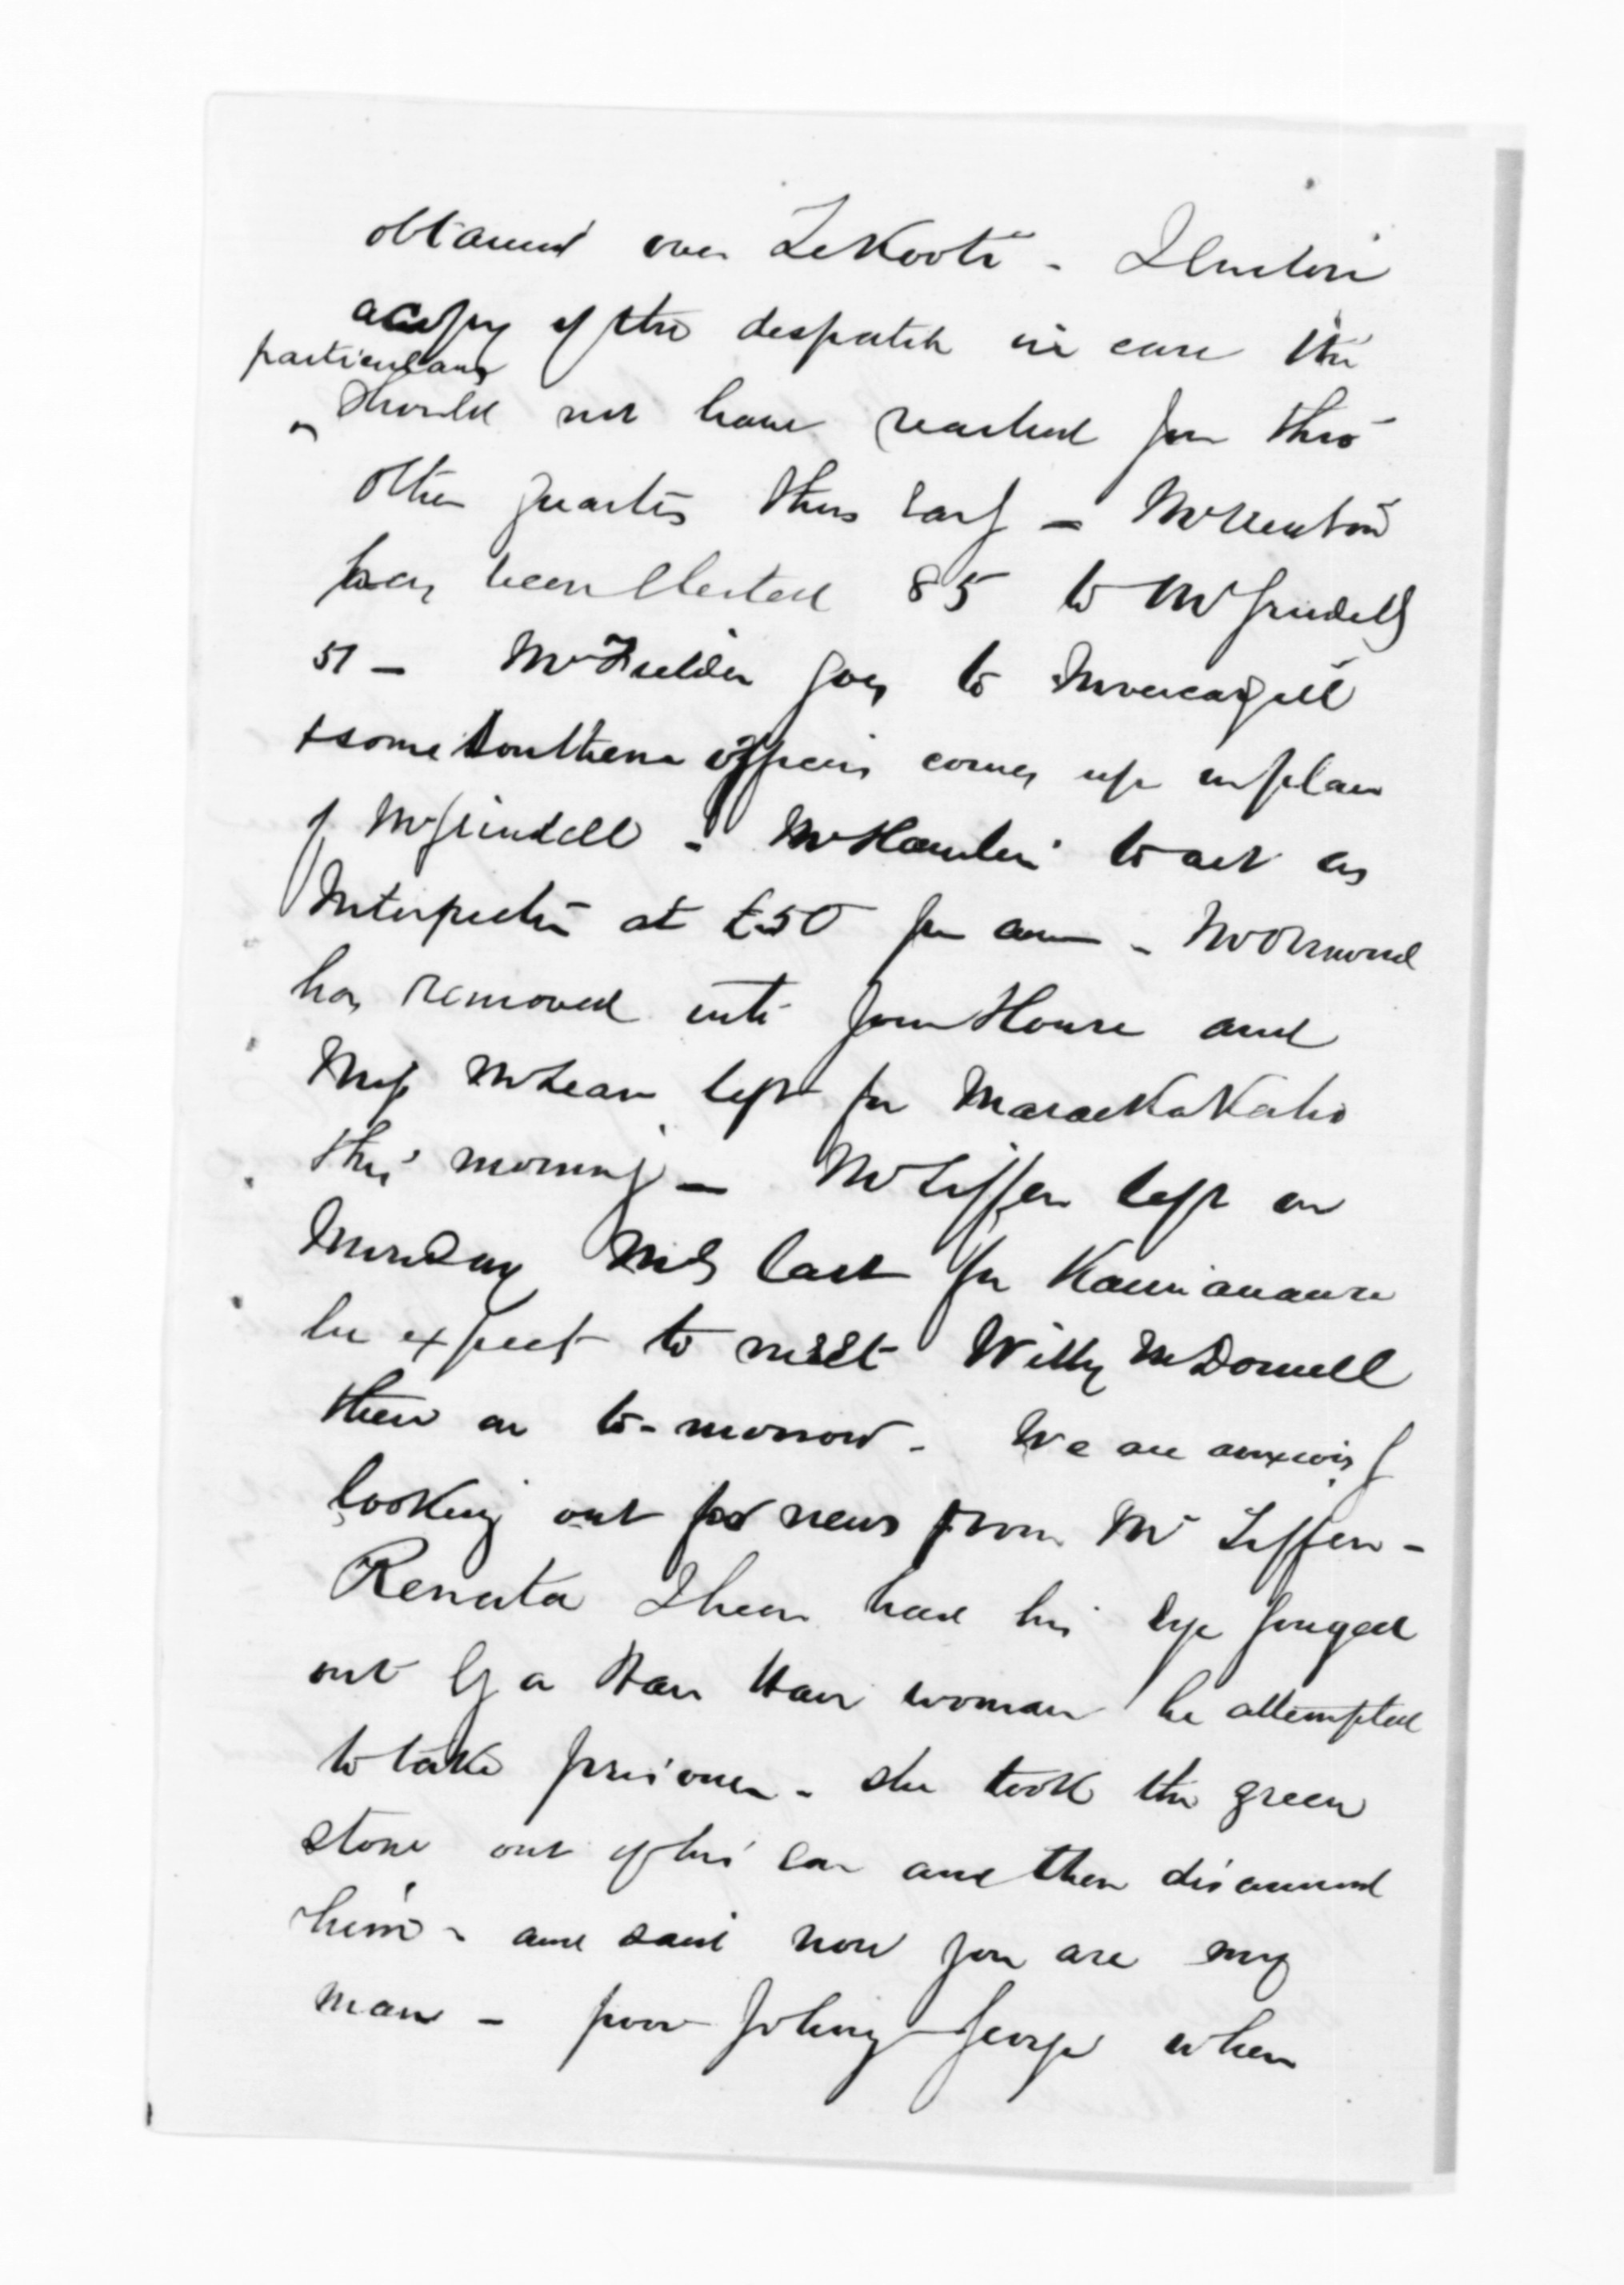 obtained over Te Kooti - I enclose
a copy of the despatch in case the
particulars
should not have reached you thro
other quarters thus early - Mr Buchanan
has been elected 85 to Mr Grindell
51 - Mr Fielder goes to Invercargill
& some Southern officer comes up in place
of Mr Grindell - Mr Hamlin to act as
Interpreter at £50 per ann - Mr Ormond
has removed into your House and
Miss McLean left for Maraekakaho
this morning - Mr Tiffen left on
Monday last for Kaimanawa
he expects to meet Willy McDonnell
there on to-morrow - We are anxiously
looking out for news from Mr Tiffen -
Renata I hear had his eye gouged
out by a Hau Hau woman he attempted
to take prisoner - she took the green
stone out of his ear and then disarmed
him - and said now you are my
man - poor Johnny George when